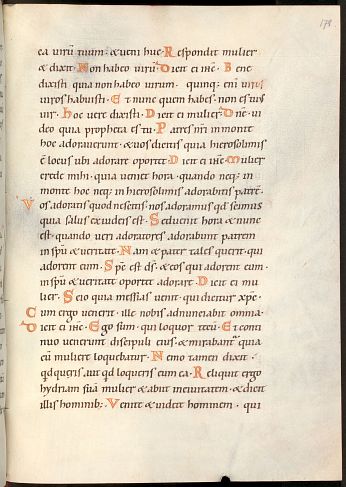 178
ea virū tuum: & veni huc. Respondit mulier
& dixit. Non habeo virū. Dicit ei ihc̄. Bene
dixisti quia non habeo virum. quinq; eni viros
viros habuisti. Et nunc quem habes. non est tuus
vir. Hoc vere dixisti. Dicit ei mulier. Dn̄e. vi
deo quia propheta es tu. Patres nr̄i in monte
hoc adoraverunt. & vos dicitis quia hierosolimis
ē locus ubi adorare oportet. Dicit ei ihc̄. Mulier
crede mihi. quia veniet hora. quando neq; in
monte hoc neq; in hierosolimis adorabitis patrē.
Vos adoratis quod nescitis. nos adoramus qd scimus
quia salus ex iudeis est. Sed venit hora & nunc
est. quando veri adoratores adorabunt patrem
in spū & veritate. Nam & pater tales querit. qui
adorent eum. Spc̄ est ds̄. & eos qui adorent eum.
in spū & veritate oportet adorare. Dicit ei mu
lier. Scio quia messias venit. qui dicitur xpc̄.
Cum ergo venerit ille nobis adnunciabit omnia.
Dicit ei ihc̄. Ego sum. qui loquor tecū. Et conti
nuo venerunt discipuli eius. & mirabant' quia
cū muliere loquebatur. Nemo tamen dixit.
qd queris. aut qd loqueris cum ea. Reliquit ergo
hydriam suā mulier & abiit in civitatem. & dicit
illis hominib;. Venite & videte hominem. qui